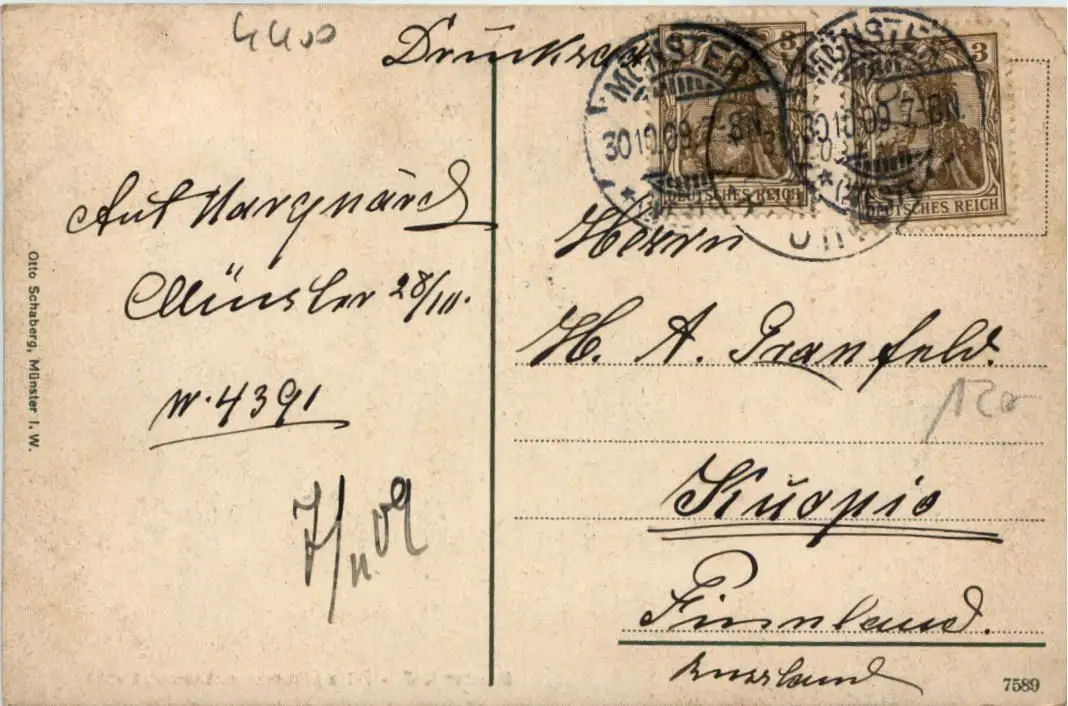 4400
Drucksa
3
3
MÜNSTER
MÜNSTER
30.10.09.7-8N.
30.10.09.7-8N.
* (WESTF.) *
DEUTSCHES REICH
DEUTSCHES REICH
Ant Marquard
Münster 28/III.
N. 4391
7/11 09
Otto Schaberg, Münster i. W.
Herrn
H. A. Granfeld.
120
Kuopio
Finnland.
Russland
7589